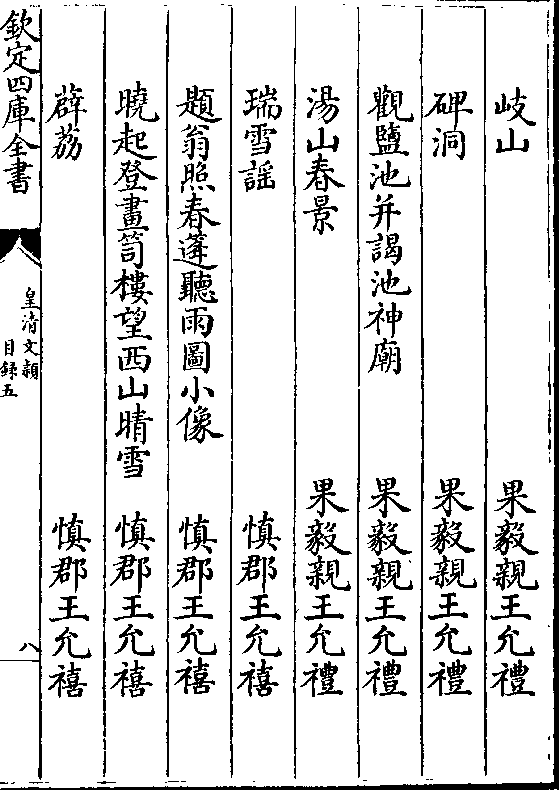 岐山　果毅親王允禮
碑洞　果毅親王允禮
觀鹽池并謁池神廟　果毅親王允禮
湯山春景　果毅親王允禮
瑞雪謡　慎郡王允禧
題翁照春篷聽雨圖小像　慎郡王允禧
曉起登畫笥樓望西山晴雪　慎郡王允禧
薜荔　慎郡王允禧
欽定四庫全書
皇清文穎
目錄五
八